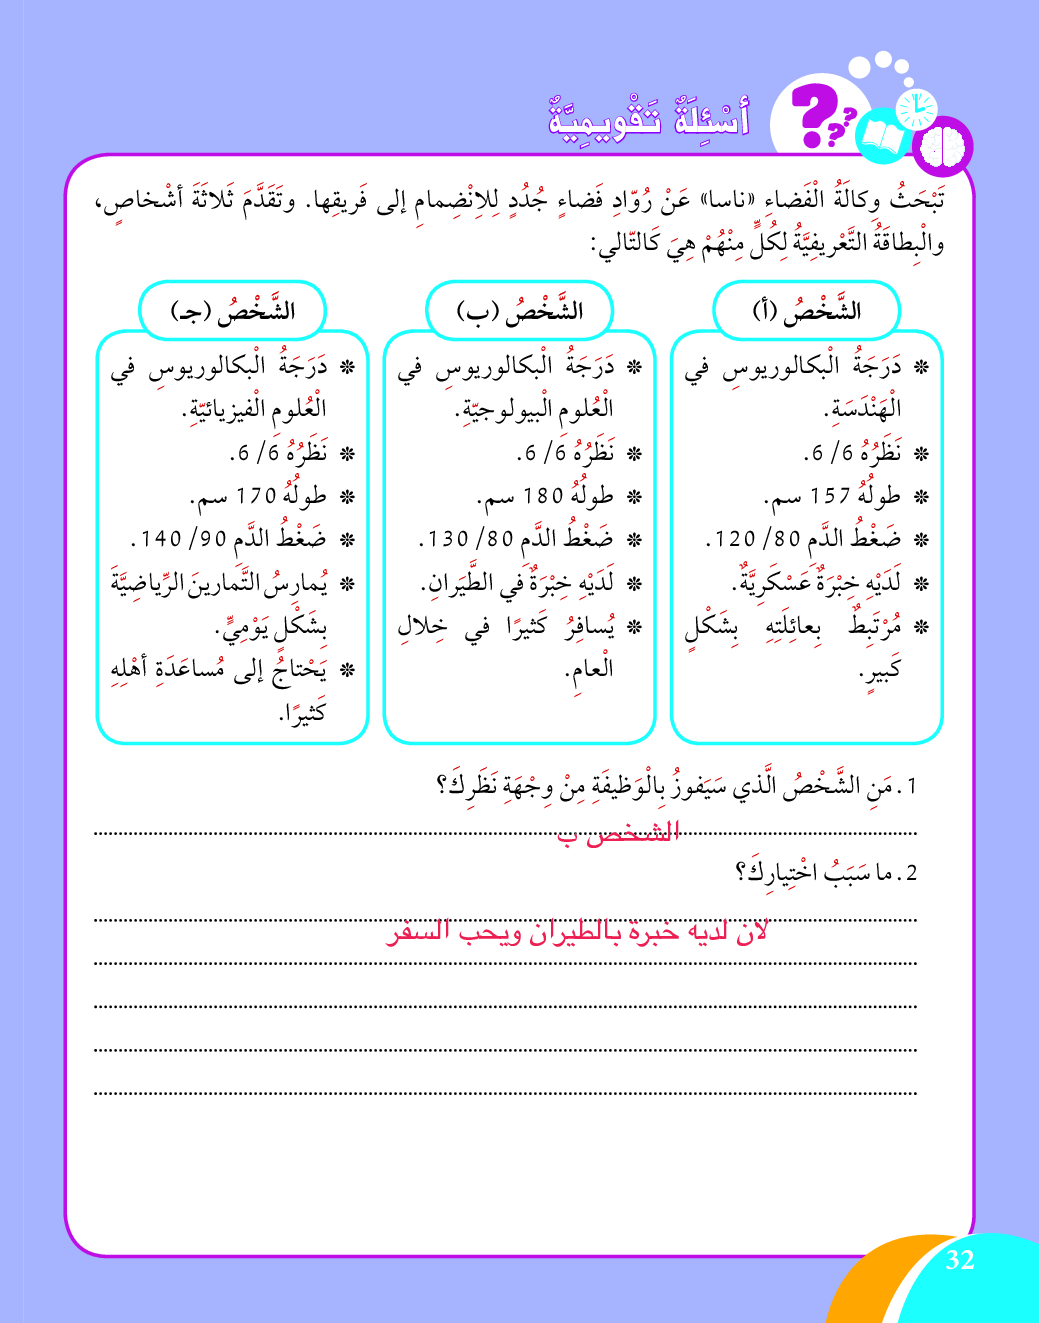 أَسْئِلَةٌ تَقْويمِيَّةٌ
تَبْحَثُ وِكالَةُ الْفَضاءِ «ناسا» عَنْ رُوّادِ فَضاءٍ جُدُدٍ لِلِانْضِمامِ إلى فَريقِها. وتَقَدَّمَ ثَلاثَةَ أشْخاصٍ،
والْبِطاقَةُ التَّعْريفِيَّةُ لِكُلٍّ مِنْهُمْ هِيَ كَالتّالي:
الشَّخْصُ (أ)
❊ دَرَجَةُ الْبكالوريوسِ في
الْهَنْدَسَةِ.
❊ نَظَرُهُ 6/ 6.
❊ طولُهُ 157 سم.
❊ ضَغْطُ الدَّمِ 80/ 120.
❊ لَدَيْهِ خِبْرَةٌ عَسْكَرِيَّةٌ.
❊ مُرْتَبِطٌ بِعائِلَتِهِ بِشَكْلٍ
كَبيرٍ.
الشَّخْصُ (ب)
❊ دَرَجَةُ الْبكالوريوسِ في
الْعُلومِ الْبيولوجيّةِ.
❊ نَظَرُهُ 6/ 6.
❊ طولُهُ 180 سم.
❊ ضَغْطُ الدَّمِ 80/ 130.
❊ لَدَيْهِ خِبْرَةٌ في الطَّيَرانِ.
❊ يُسافِرُ كَثيرًا في خِلالِ
الْعامِ.
الشَّخْصُ (جـ)
❊ دَرَجَةُ الْبكالوريوسِ في
الْعُلومِ الْفيزيائيّةِ.
❊ نَظَرُهُ 6/ 6.
❊ طولُهُ 170 سم.
❊ ضَغْطُ الدَّمِ 90/ 140.
❊ يُمارِسُ التَّمارينَ الرِّياضِيَّةَ
بِشَكْلٍ يَوْمِيٍّ.
❊ يَحْتاجُ إلى مُساعَدَةِ أهْلِهِ
كَثيرًا.
1. مَنِ الشَّخْصُ الَّذي سَيَفوزُ بِالْوَظيفَةِ مِنْ وِجْهَةِ نَظَرِكَ؟
الشخص ب
2. ما سَبَبُ اخْتِيارِكَ؟
لان لديه خبرة بالطيران ويحب السفر
32